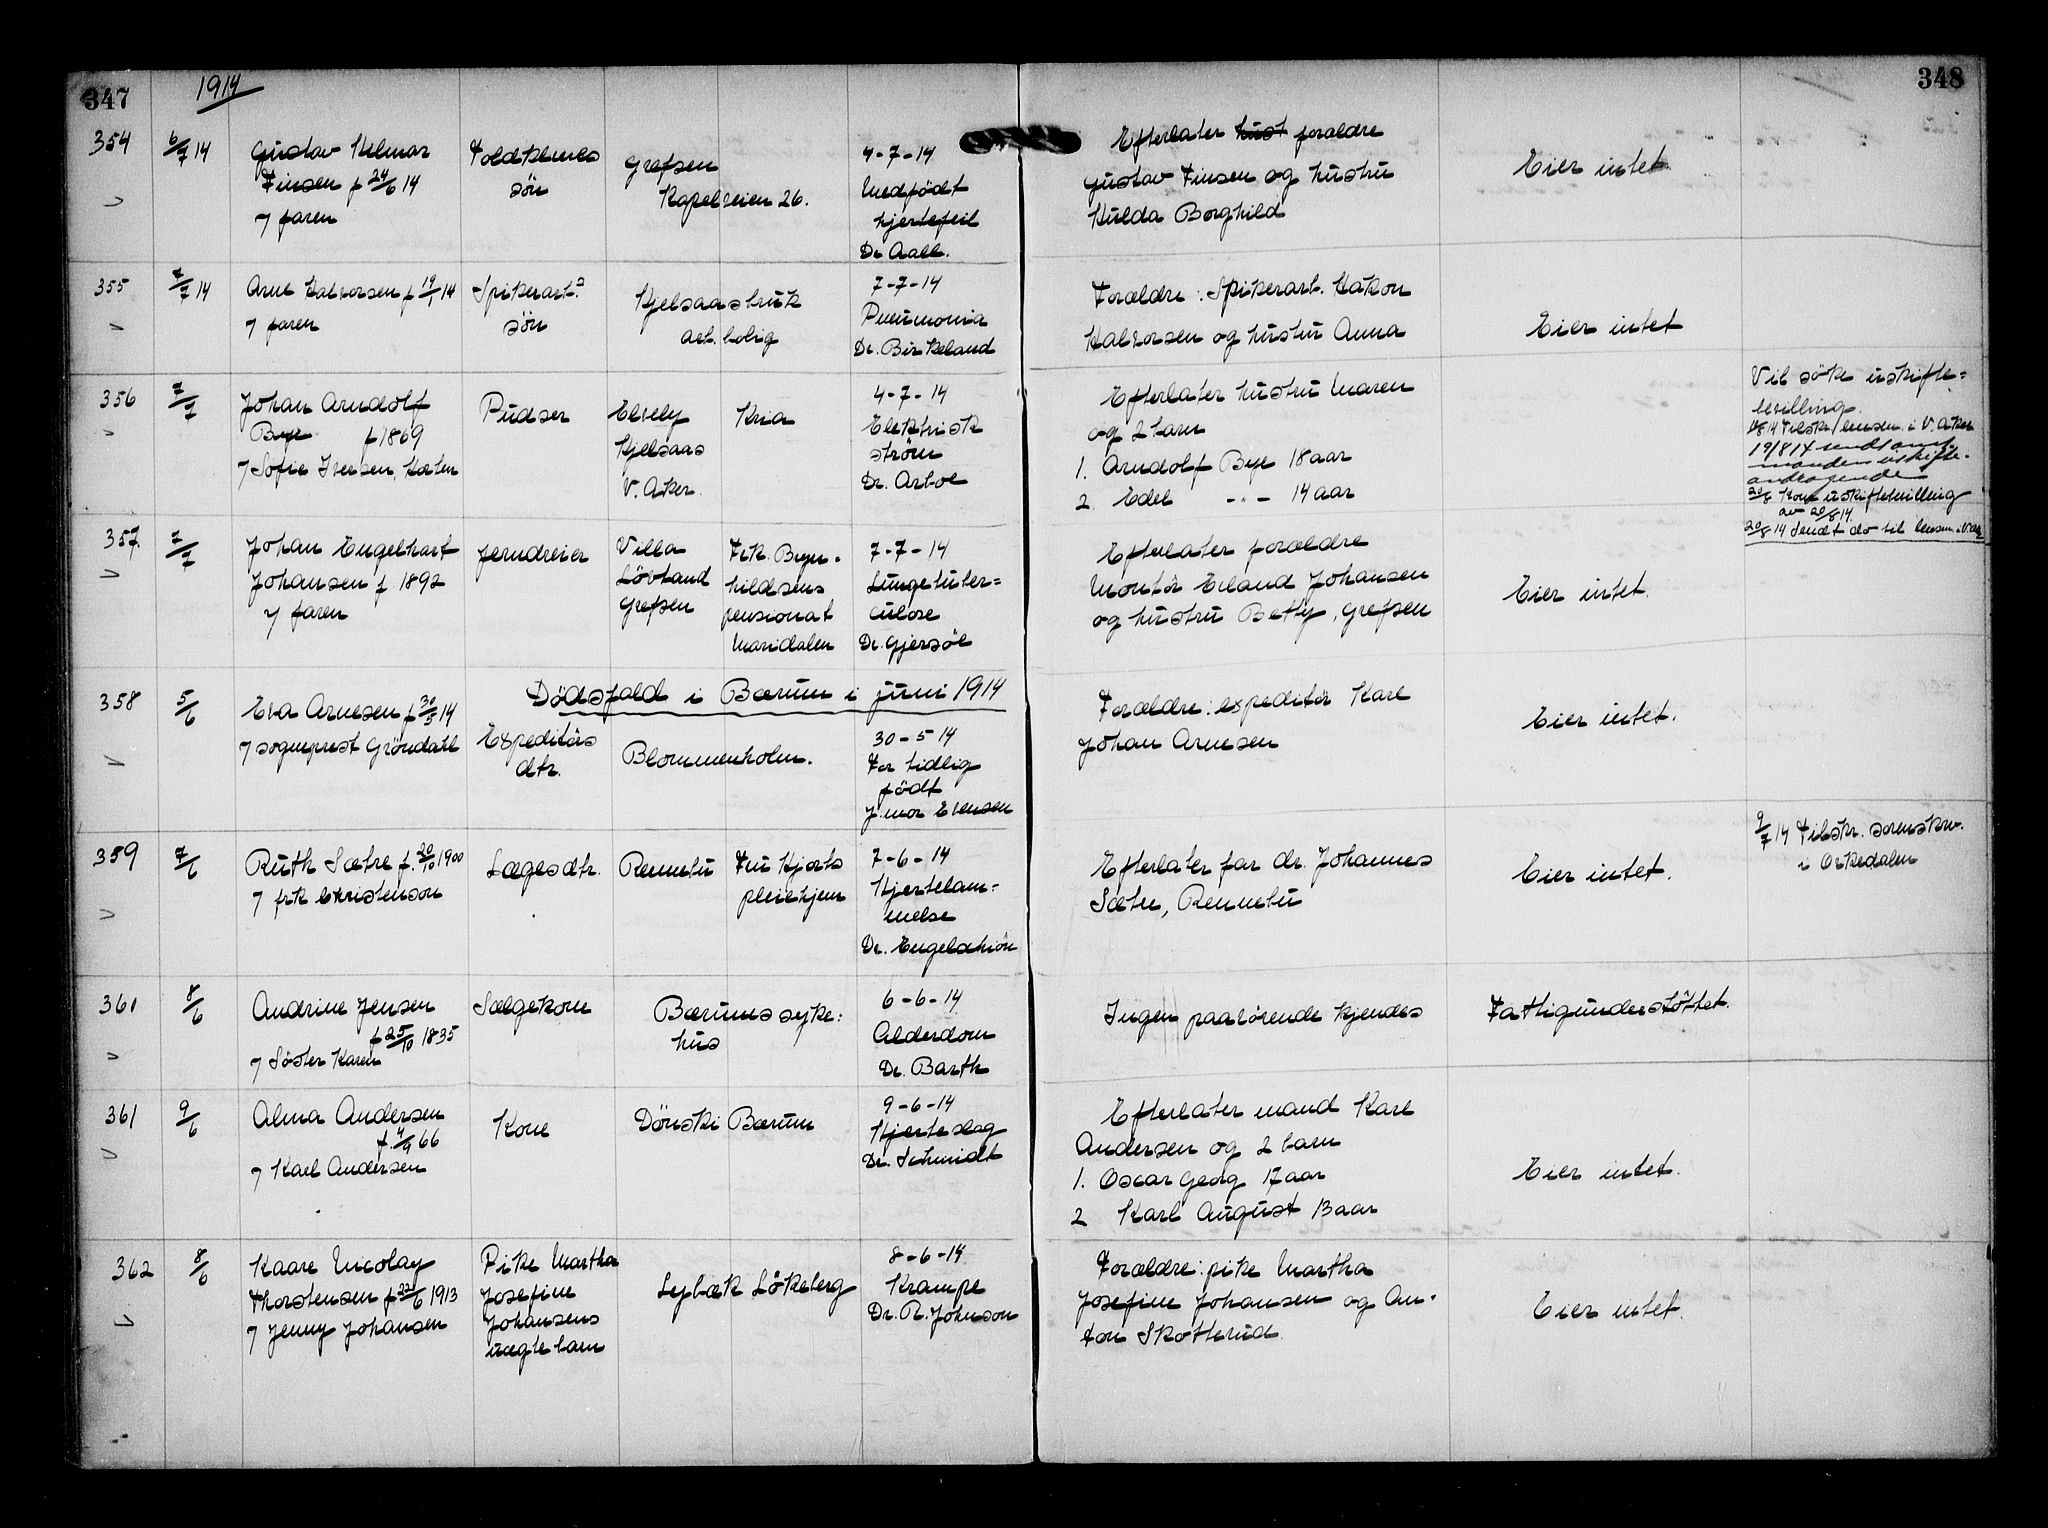 347
1914
348
354
6/7 14
Gustav Hilmar
Finsen f 24/6 14
7 faren
Toldkleves
sön
Grefsen
Kapelveien 26.
4-7-14
Medfödt
hjertefeil
Dr Aall.
Efterlater hust forældre
Gustav Finsen og hustru
Hulda Borghild
Eier intet
355
7/7 14
Arne Halvorsen f 19/1 14
7 faren
Spikerarb.s
sön
Kjelsaas bruk
arb. bolig
7-7-14
Pneumonia
Dr. Birkeland
Forældre: Spikerarb. Hakon
Halvorsen og hustru Anna
Eier intet
356
7/7
Johan Arndolf
Bye f 1869
7 Sofie Iversen,
Pudser
Elvely
Kjelsaas
V. Aker.
Kria
4-7-14
Elektrisk
ström
Dr. Arboe
Efterlater hustru Maren
og 2 barn
1. Arndolf Bye 18 aar
2. Edel -"- 14 aar
Vil söke uskifte=
bevilling.
14 Tilskr. lensm. i V. Aker
19/8 14 sendt amt-
manden uskifte-
andragende
20/8 Kom uskiftebevilling
av 20/8 14.
20/8 14 Sendt do til lensm. i V. Ak
357.
7/7
Johan Engelhart
Johansen f 1892
7 faren
Jerndreier
Villa
Lövland
Grefsen
Frk. Bryn-
hildsens
pensionat
Maridalen
7-7-14
Lungetuber=
culose
Dr. Gjersöe
Efterlater forældre
Montör Erland Johansen
og hustru Betty, Grefsen
Eier intet.
Dödsfald i Bærum i juni 1914
358
5/6
Eva Arnesen f 30/5 14
7 sogneprest Gröndahl
Expeditörs
dtr.
Blommenholm.
30-5 14
For tidlig
födt
J.mor Evensen
Forældre: expeditör Karl
Johan Arnesen
Eier intet.
359
7/6
Ruth Sætre f. 20/10 1900
7 frk Christenson
Lægesdtr.
Rennebu
Fru Hjorts
pleiehjem
7-6-14
Hjertelam=
melse
Dr. Engelschiön
Efterlater far dr. Johannes
Sætre, Rennebu
Eier intet.
9/7 14 Tilskr. sorenskriv.
i Orkedalen
361
8/6
Andrine Jensen
f 25/10 1835
7 Söster Karen
Sælgekone
Bærums syke:
hus
6-6-14
Alderdom
Dr. Barth
Ingen paarörende kjendes
Fattigunderstöttet.
361
9/6
Alma Andersen
f. 4/9 66
7 Karl Andersen
Kone
Dönski Bærum
9-6-14
Hjerteslag
Dr. Schmidt
Efterlater mand Karl
Andersen og 2 barn
1. Oscar Georg 17 aar
2 Karl August 13 aar
Eier intet.
362
8/6
Kaare Nicolay
Thorstensen f 22/6 1913
7 Jenny Johansen
Pike Martha
Josefine
Johansens
uægte barn
Lybæk Lökeberg
8-6-14
Krampe
Dr. R. Johnson
Forældre: pike Martha
Josefine Johansen og An-
ton Skotterud.
Eier intet.